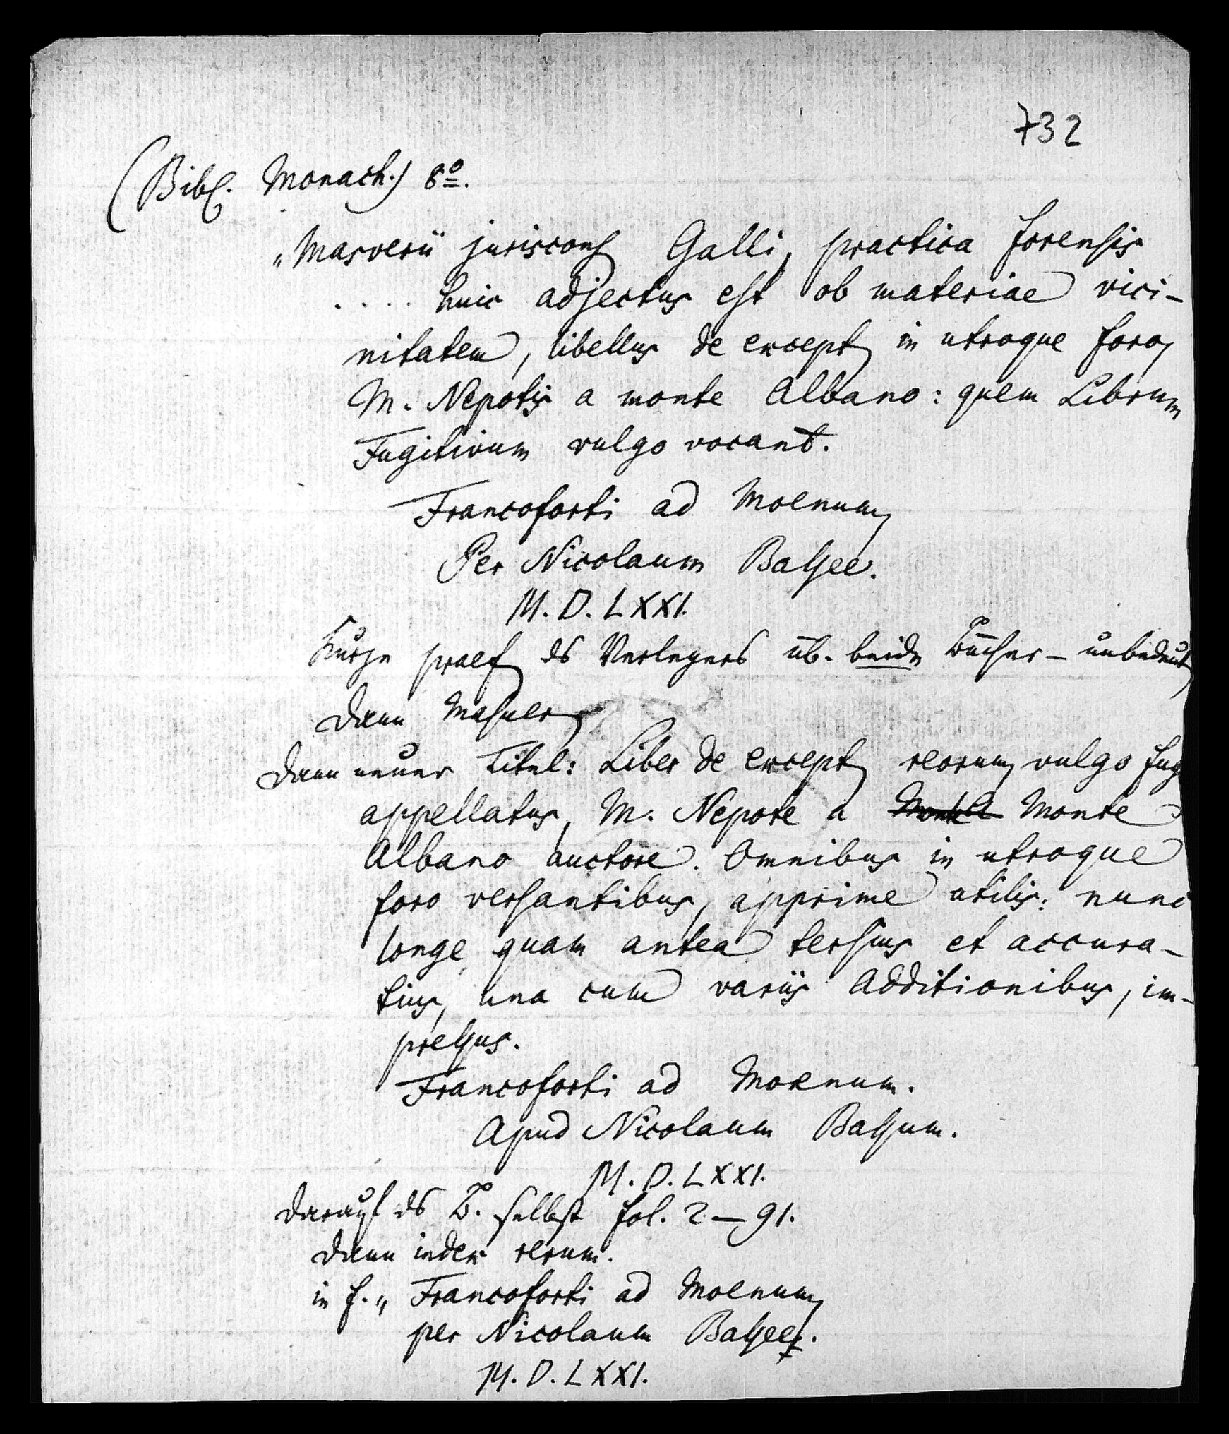 732
(Bibl. Monach.) 8º.
„Masverii jurisconſ Galli, practica forensis
.... huic adjectus est ob materiae vici-
nitatem, libellus de except in utroque foro,
M. Nepotis a monte Albano: quem Librum
Fugitivum vulgo vocant.
Francoforti ad Moenum
Per Nicolaum Bassee.
M. D. LXXI.
Kurze praef ds Verlegers üb. beide Bücher – unbedeut
Dann Masuer
Dann neuer Titel: Liber de except reorum vulgo fug
appellatus, M. Nepote a Monte
Albano auctore. Omnibus in utroque
foro versantibus, apprime utilis: nunc
longe, quam antea tersius et accura-
tius, una cum variis Additionibus, im-
pressus.
Francoforti ad Moenum.
Apud Nicolaum Bassum.
M. D. LXXI.
Darauf ds B. selbst fol. 2 – 91.
Dann index rerum.
in f. „ Francoforti ad Moenum
per Nicolaum Bassee.
M. D. LXXI.